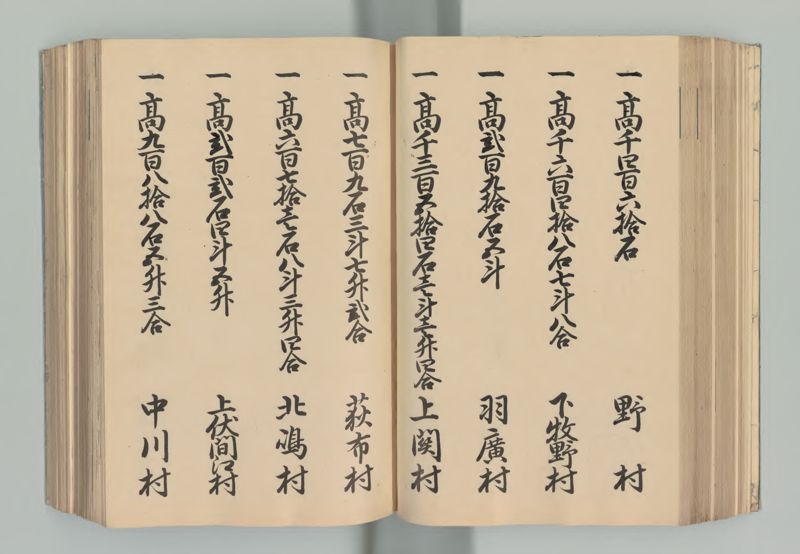 一 高千四百六拾石 野村
一 高千六百四拾八石七斗八合 下牧野村
一 高弐百九拾石五斗 羽廣村
一 高千三百五拾四石壱斗壱升四合 上関村
一 高七百九石三斗七升弐合 萩布村
一 高六百七拾壱石八斗三升四合 北嶋村
一 高弐百弐石四斗五升 上伏間江村
一 高九百八拾八石五升三合 中川村